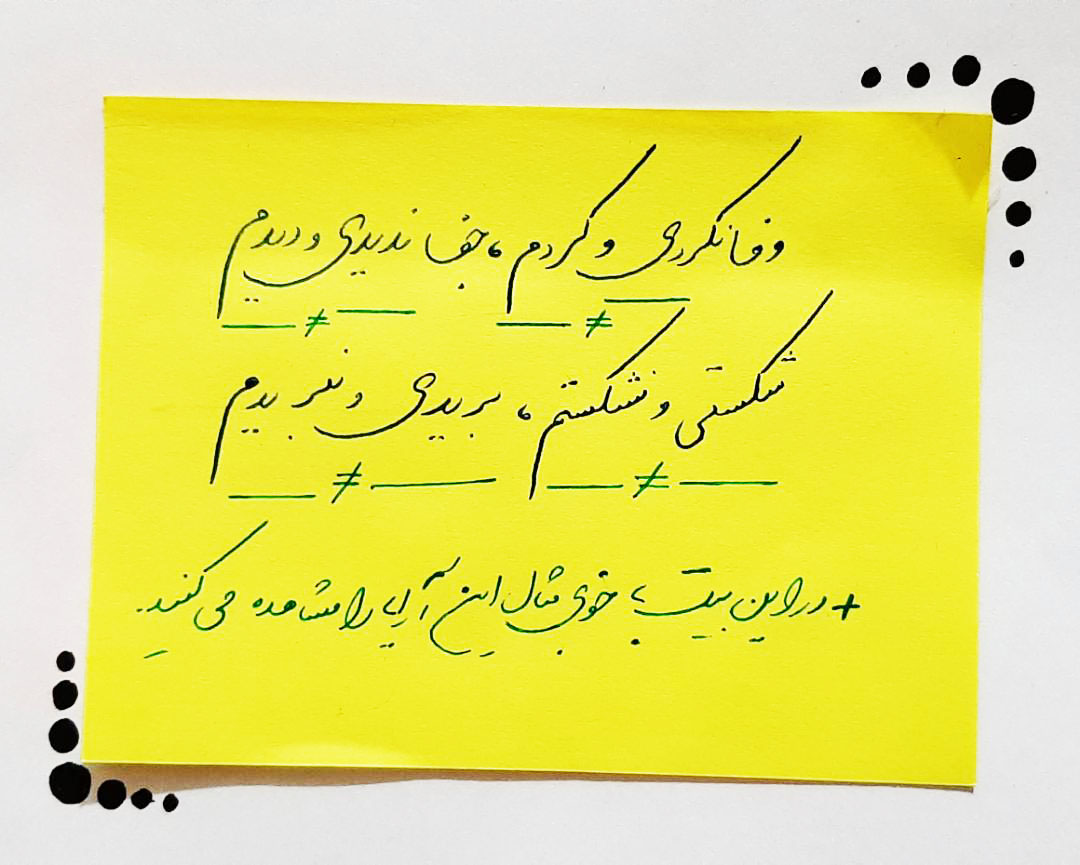 وفا نکردی و کردم، جفا ندیدی و دیدم
≠ ≠
شکستی و نشکستم، بریدی و نبریدم
≠ ≠
+ در این بیت به خوبی مثال این آرایه را مشاهده می کنید.